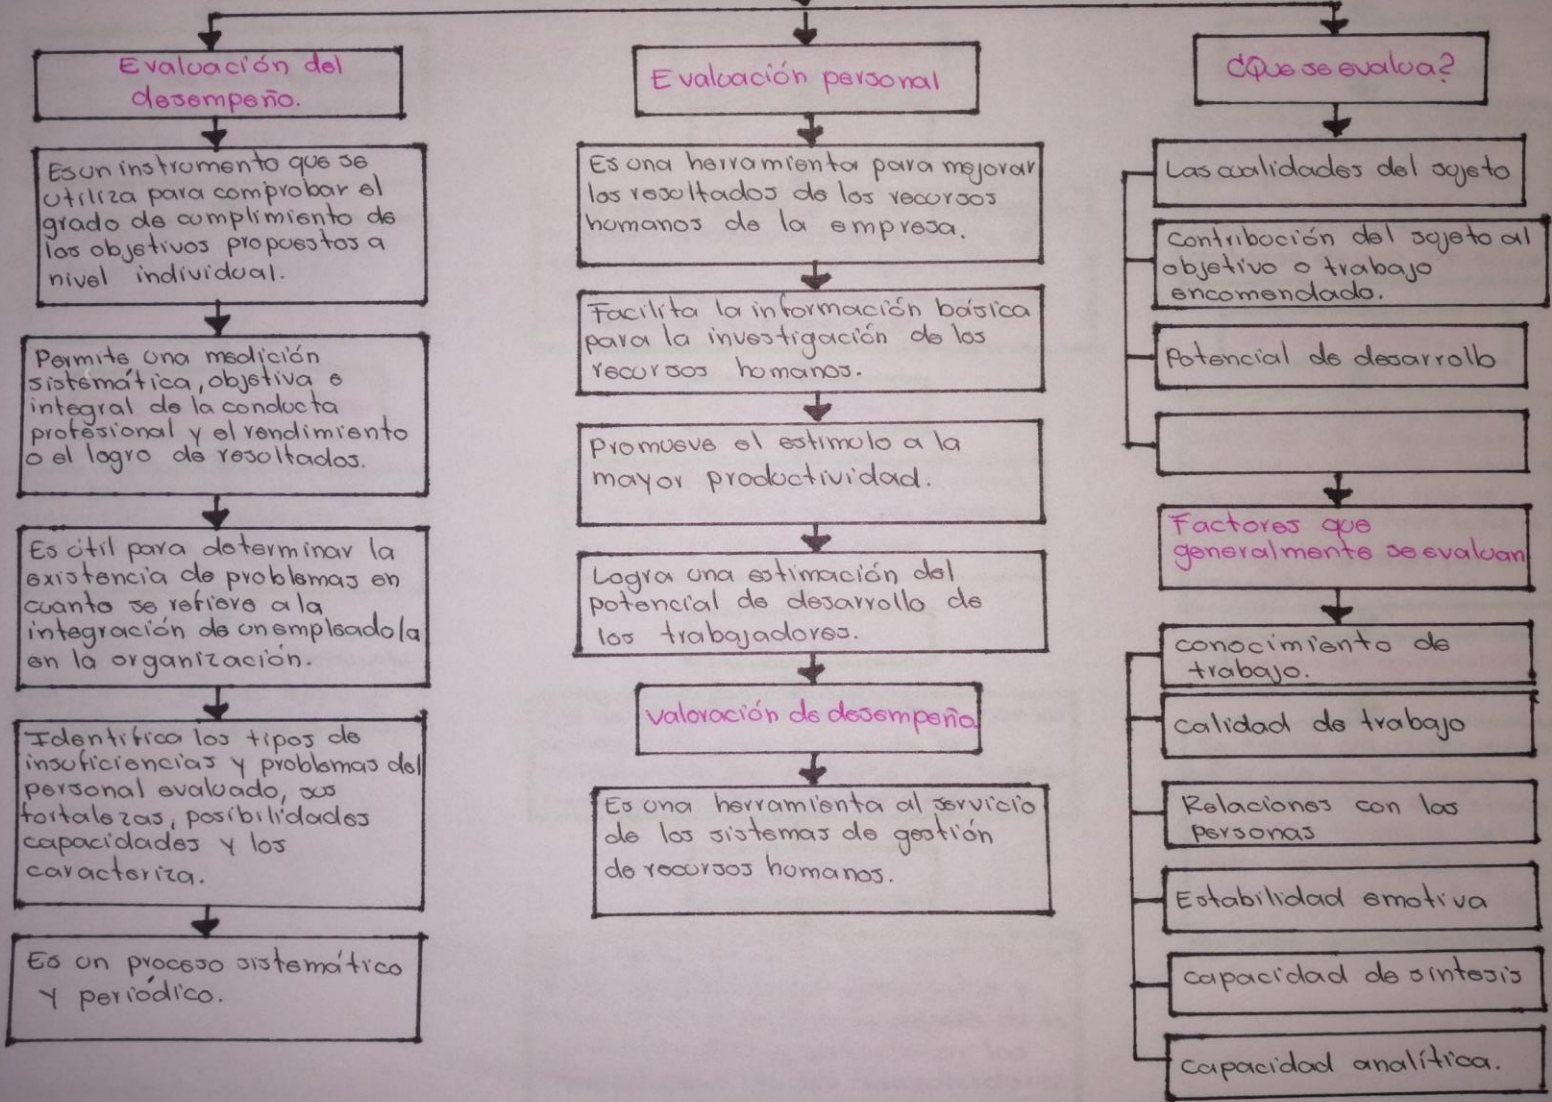 Evaluación del
desempeño.
Es un instrumento que se
utiliza para comprobar el
grado de cumplimiento de
los objetivos propuestos a
nivel individual.
Permite una medición
sistemática, objetiva e
integral de la conducta
profesional y el rendimiento
o el logro de resultados.
Es útil para determinar la
existencia de problemas en
cuanto se refiere a la
integración de un empleado/a
en la organización.
Identifica los tipos de
insuficiencias y problemas del
personal evaluado, sus
fortalezas, posibilidades
capacidades y los
caracteriza.
Es un proceso sistemático
y periódico.
Evaluación personal
Es una herramienta para mejorar
los resultados de los recursos
humanos de la empresa.
Facilita la información básica
para la investigación de los
recursos humanos.
Promueve el estimulo a la
mayor productividad.
Logra una estimación del
potencial de desarrollo de
los trabajadores.
Valoración de desempeño
Es una herramienta al servicio
de los sistemas de gestión
de recursos humanos.
¿Que se evalua?
Las cualidades del sujeto
Contribución del sujeto al
objetivo o trabajo
encomendado.
Potencial de desarrollo
Factores que
generalmente se evaluan
Conocimiento de
trabajo.
Calidad de trabajo
Relaciones con las
personas
Estabilidad emotiva
Capacidad de síntesis
Capacidad analítica.